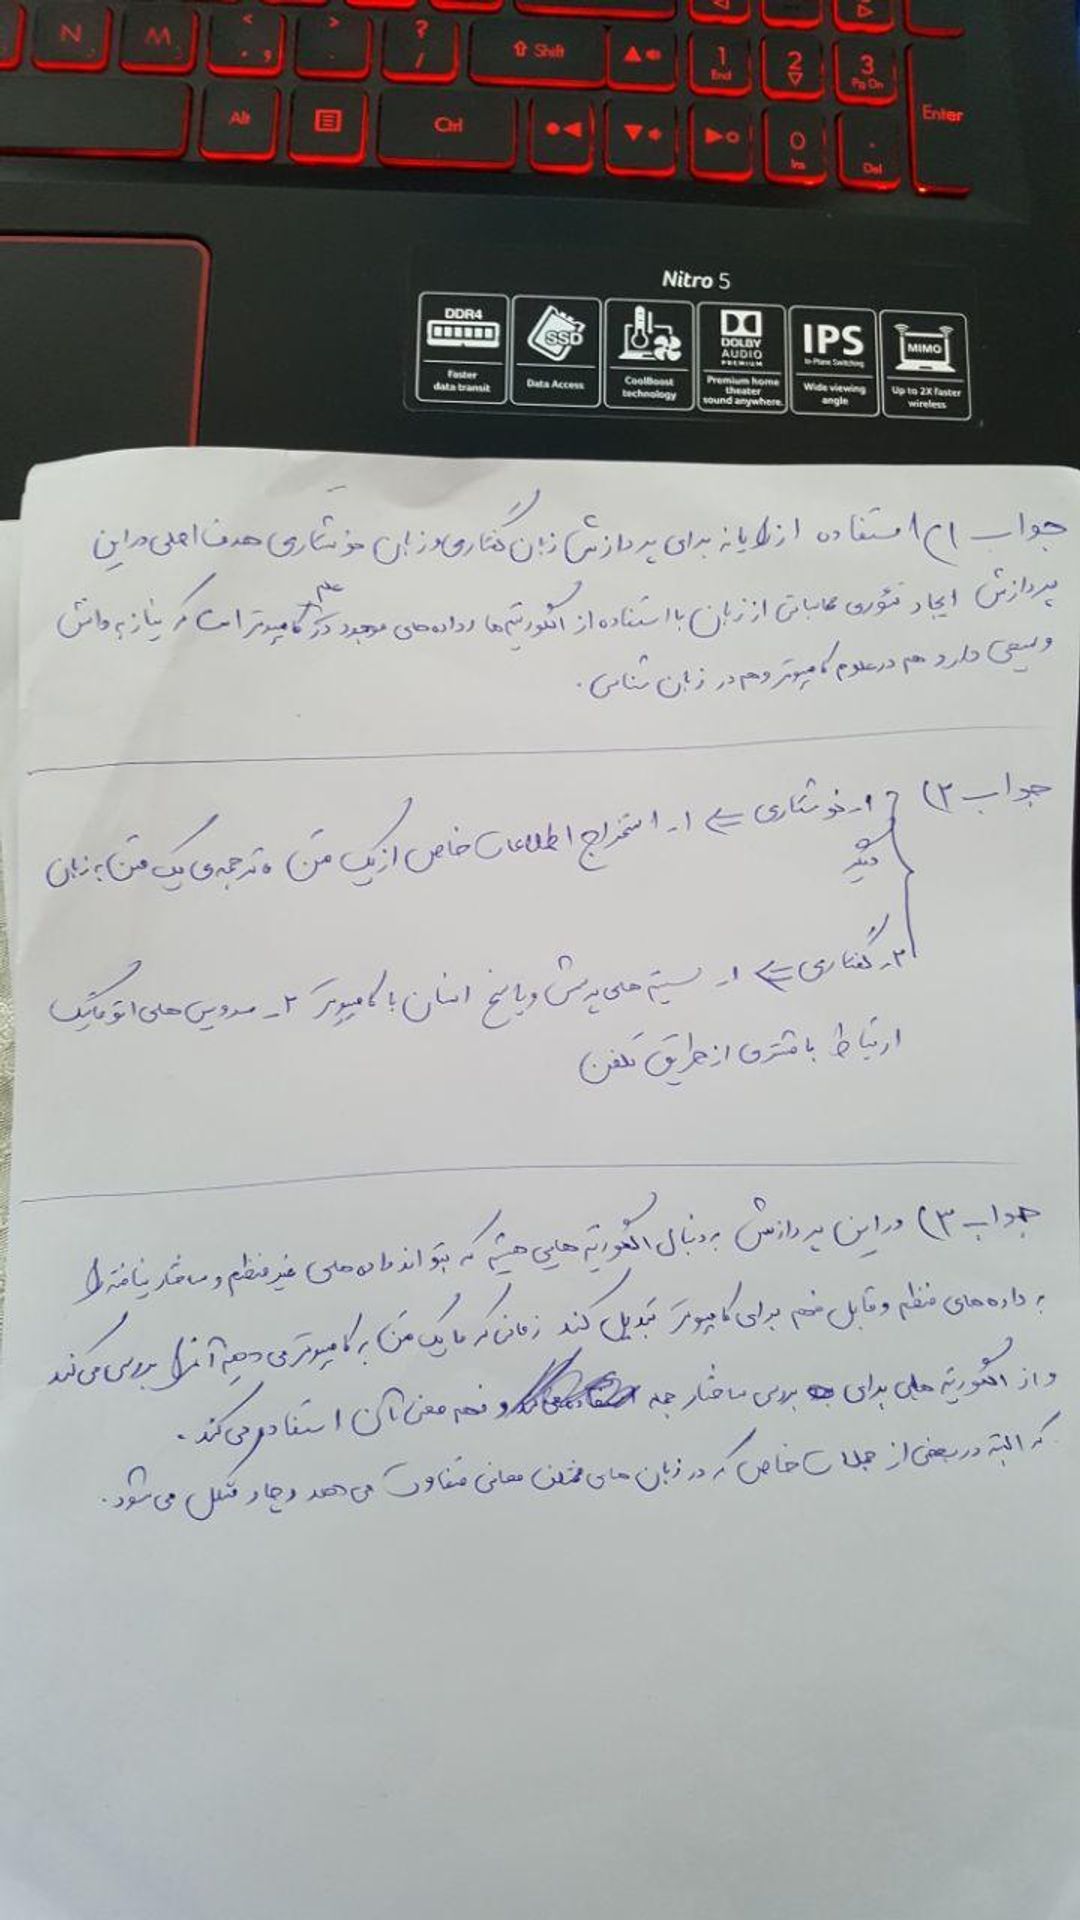 N M < , و > . ? / ⇧ Shift ▲ 1 End 2 ▽ 3 Pg Dn
Alt Ctrl ◀ ▼ ▶ 0 Ins . Del Enter
Nitro 5
DDR4 SSD DOLBY AUDIO PREMIUM IPS In-Plane Switching MIMO
Faster data transit Data Access CoolBoost technology Premium home theater sound anywhere. Wide viewing angle Up to 2X faster wireless
جواب ۱) استفاده از رایانه برای پردازش زبان گفتاری و زبان نوشتاری هدف اصلی در این
پردازش ایجاد تئوری محاسباتی از زبان با استفاده از الگوریتم‌ها و داده‌های موجود در علم کامپیوتر است که نیاز به دانش
وسیعی دارد هم در علوم کامپیوتر و هم در زبان شناسی.
جواب ۲) ۱- نوشتاری ⇐ ۱- استخراج اطلاعات خاص از یک متن ترجمه‌ی یک متن به زبان
دیگر
۲- گفتاری ⇐ ۱- سیستم های پرسش و پاسخ انسان با کامپیوتر ۲- سرویس های اتوماتیک
ارتباط با مشتری از طریق تلفن
جواب ۳) در این پردازش به دنبال الگوریتم هایی هستیم که بتواند داده‌های غیر منظم و ساختار نیافته را
به داده های منظم و قابل فهم برای کامپیوتر تبدیل کند زمانی که ما یک متن به کامپیوتر می دهیم آنرا بررسی می کند
و از الگوریتم هایی برای بررسی ساختار جمله و فهم معنی آن استفاده می کند.
که البته در بعضی از جملات خاص که در زبان های مختلف معانی متفاوت می دهد دچار مشکل می شود.